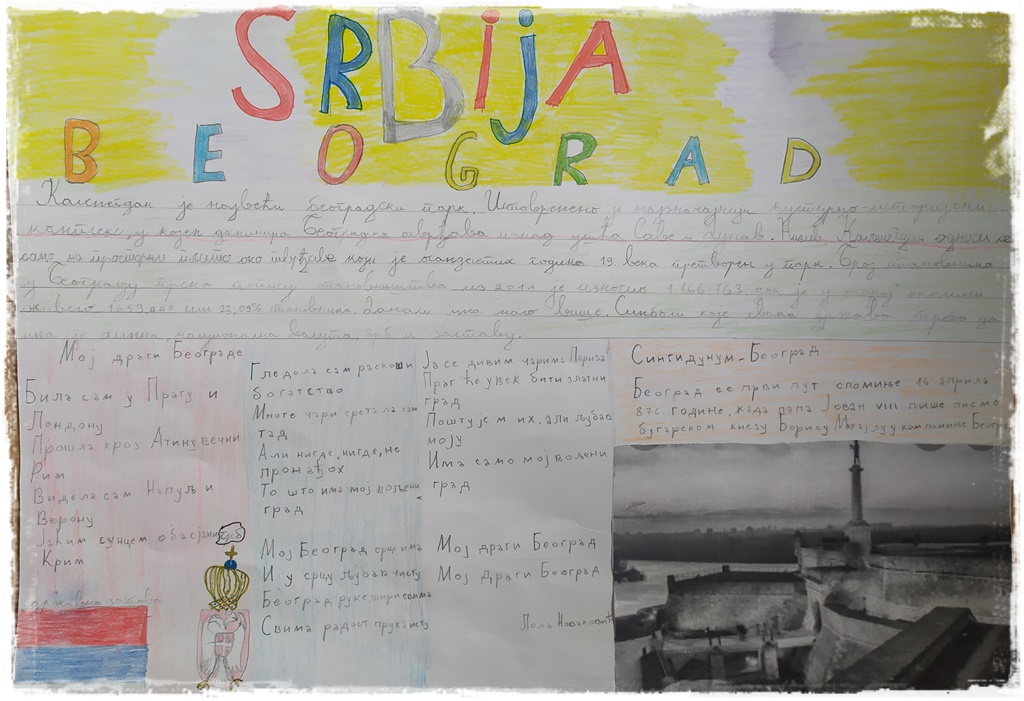 SRBIJA
BEOGRAD
Калемегдан је највећи београдски парк. Истовремено је најзначајнији културно-историјски
комплекс, у којем доминира Београдска тврђава изнад ушћа Саве и Дунав. Назив Калемегдан односи се
само на просторни плато око тврђаве који је осамдесетих година 19. века претворен у парк. Број становника
у Београду према попису становништва из 2011 је износио 1.166.763 док је у околини
1659.440 или 23,09% становника. Данас има мало више. Симболи које свака држава треба да
има је химна, национална валута, грб и заставу.
Мој драги Београде
Била сам у Прагу и
Лондону
Прошла кроз Атину вечни
Рим
Видела сам Напуљ и
Верону
Јаким сунцем обасјани
Крим
грб
државна застава
Гледала сам раскоши
богатство
Многе чари сретала сам
тад
Али нигде, нигде, не
пронађох
То што има мој вољени
град
Мој Београд срце има
И у срцу љубав чисту
Београд руке шири свима
Свима радост пружа исту
Ја се дивим чарима Париза
Праг ће увек бити златни
град
Поштујем их, али љубав
моју
Има само мој волени
град
Мој драги Београд
Мој драги Београд
Лола Новаковић
Сингидунум-Београд
Београд се први пут спомиње 16 априла
878 године, када папа Јован VIII пише писмо
бугарском кнезу Борису Михајлу у ком помиње Београд